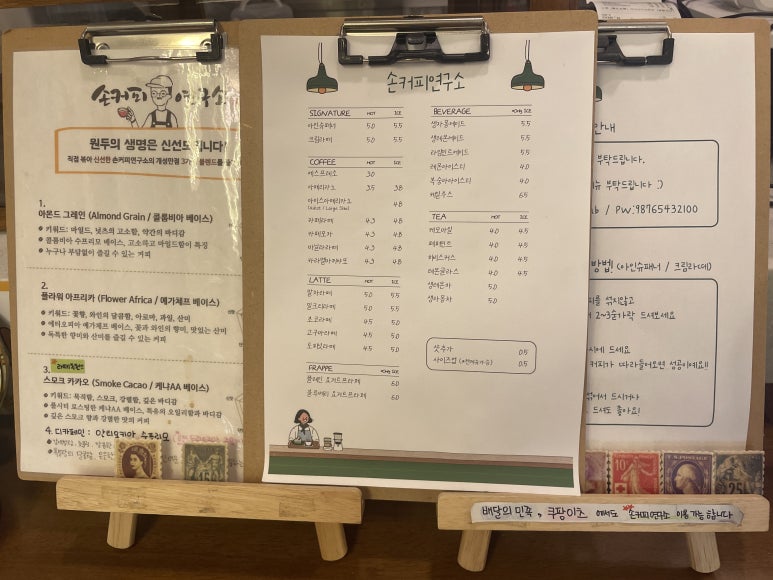 손커피 연구소
원두의 생명은 신선도입니다!
직접 볶아 신선한 손커피연구소의 개성만점 3가
1.
아몬드 그레인 (Almond Grain / 콜롬비아 베이스)
키워드: 마일드, 넛츠의 고소함, 약간의 바디감
콜롬비아 수프리모 베이스, 고소하고 마일드함이 특징
누구나 부담없이 즐길 수 있는 커피
2.
플라워 아프리카 (Flower Africa / 예가체프 베이스)
키워드: 꽃향, 와인의 달콤함, 아로마, 과일, 산미
에티오피아 예가체프 베이스, 꽃과 와인의 향미, 맛있는 산미
독특한 향미와 산미를 즐길 수 있는 커피
3.
스모크 카카오 (Smoke Cacao / 케냐AA 베이스)
키워드: 묵직함, 스모크, 강렬함, 깊은 바디감
풀시티 로스팅한 케냐AA 베이스, 특유의 오일리함과 바디감
깊은 스모크 향과 강렬한 맛의 커피
4. 디카페인:
손커피연구소
SIGNATURE HOT ICE
아인슈페너 5.0 5.5
크림라떼 5.0 5.5
COFFEE HOT ICE
에스프레소 3.0
아메리카노 3.5 3.8
아이스아메리카노 4.8
카페라떼 4.3 4.8
카페모카 4.3 4.8
바닐라라떼 4.3 4.8
카라멜마끼아또 4.3 4.8
LATTE HOT ICE
말차라떼 5.0 5.5
밀크티라떼 5.0 5.5
초코라떼 4.5 5.0
고구마라떼 4.5 5.0
토피넛라떼 4.5 5.0
FRAPPE ICE
플레인 요거트프라페 6.0
블루베리 요거트프라페 6.0
BEVERAGE Only ICE
생자몽에이드 5.5
생레몬에이드 5.5
라임민트에이드 5.5
레몬아이스티 4.0
복숭아아이스티 4.0
케일주스 6.5
TEA HOT ICE
캐모마일 4.0 4.5
페퍼민트 4.0 4.5
히비스커스 4.0 4.5
레몬글라스 4.0 4.5
생레몬차 5.0
생자몽차 5.0
샷추가 0.5
사이즈업 0.5
안내
부탁드립니다.
부탁드립니다 :)
/ PW:98765432100
방법! (아인슈페너 / 크림라떼)
를 섞지않고
2~3숟가락 드셔보세요
시에 드세요
커피가 따라들어오면 성공이예요!!
섞어서 드시거나
드셔도 좋아요!
10
U.S. POSTAGE
배달의 민족, 쿠팡이츠 에서도 손커피연구소 이용 가능합니다